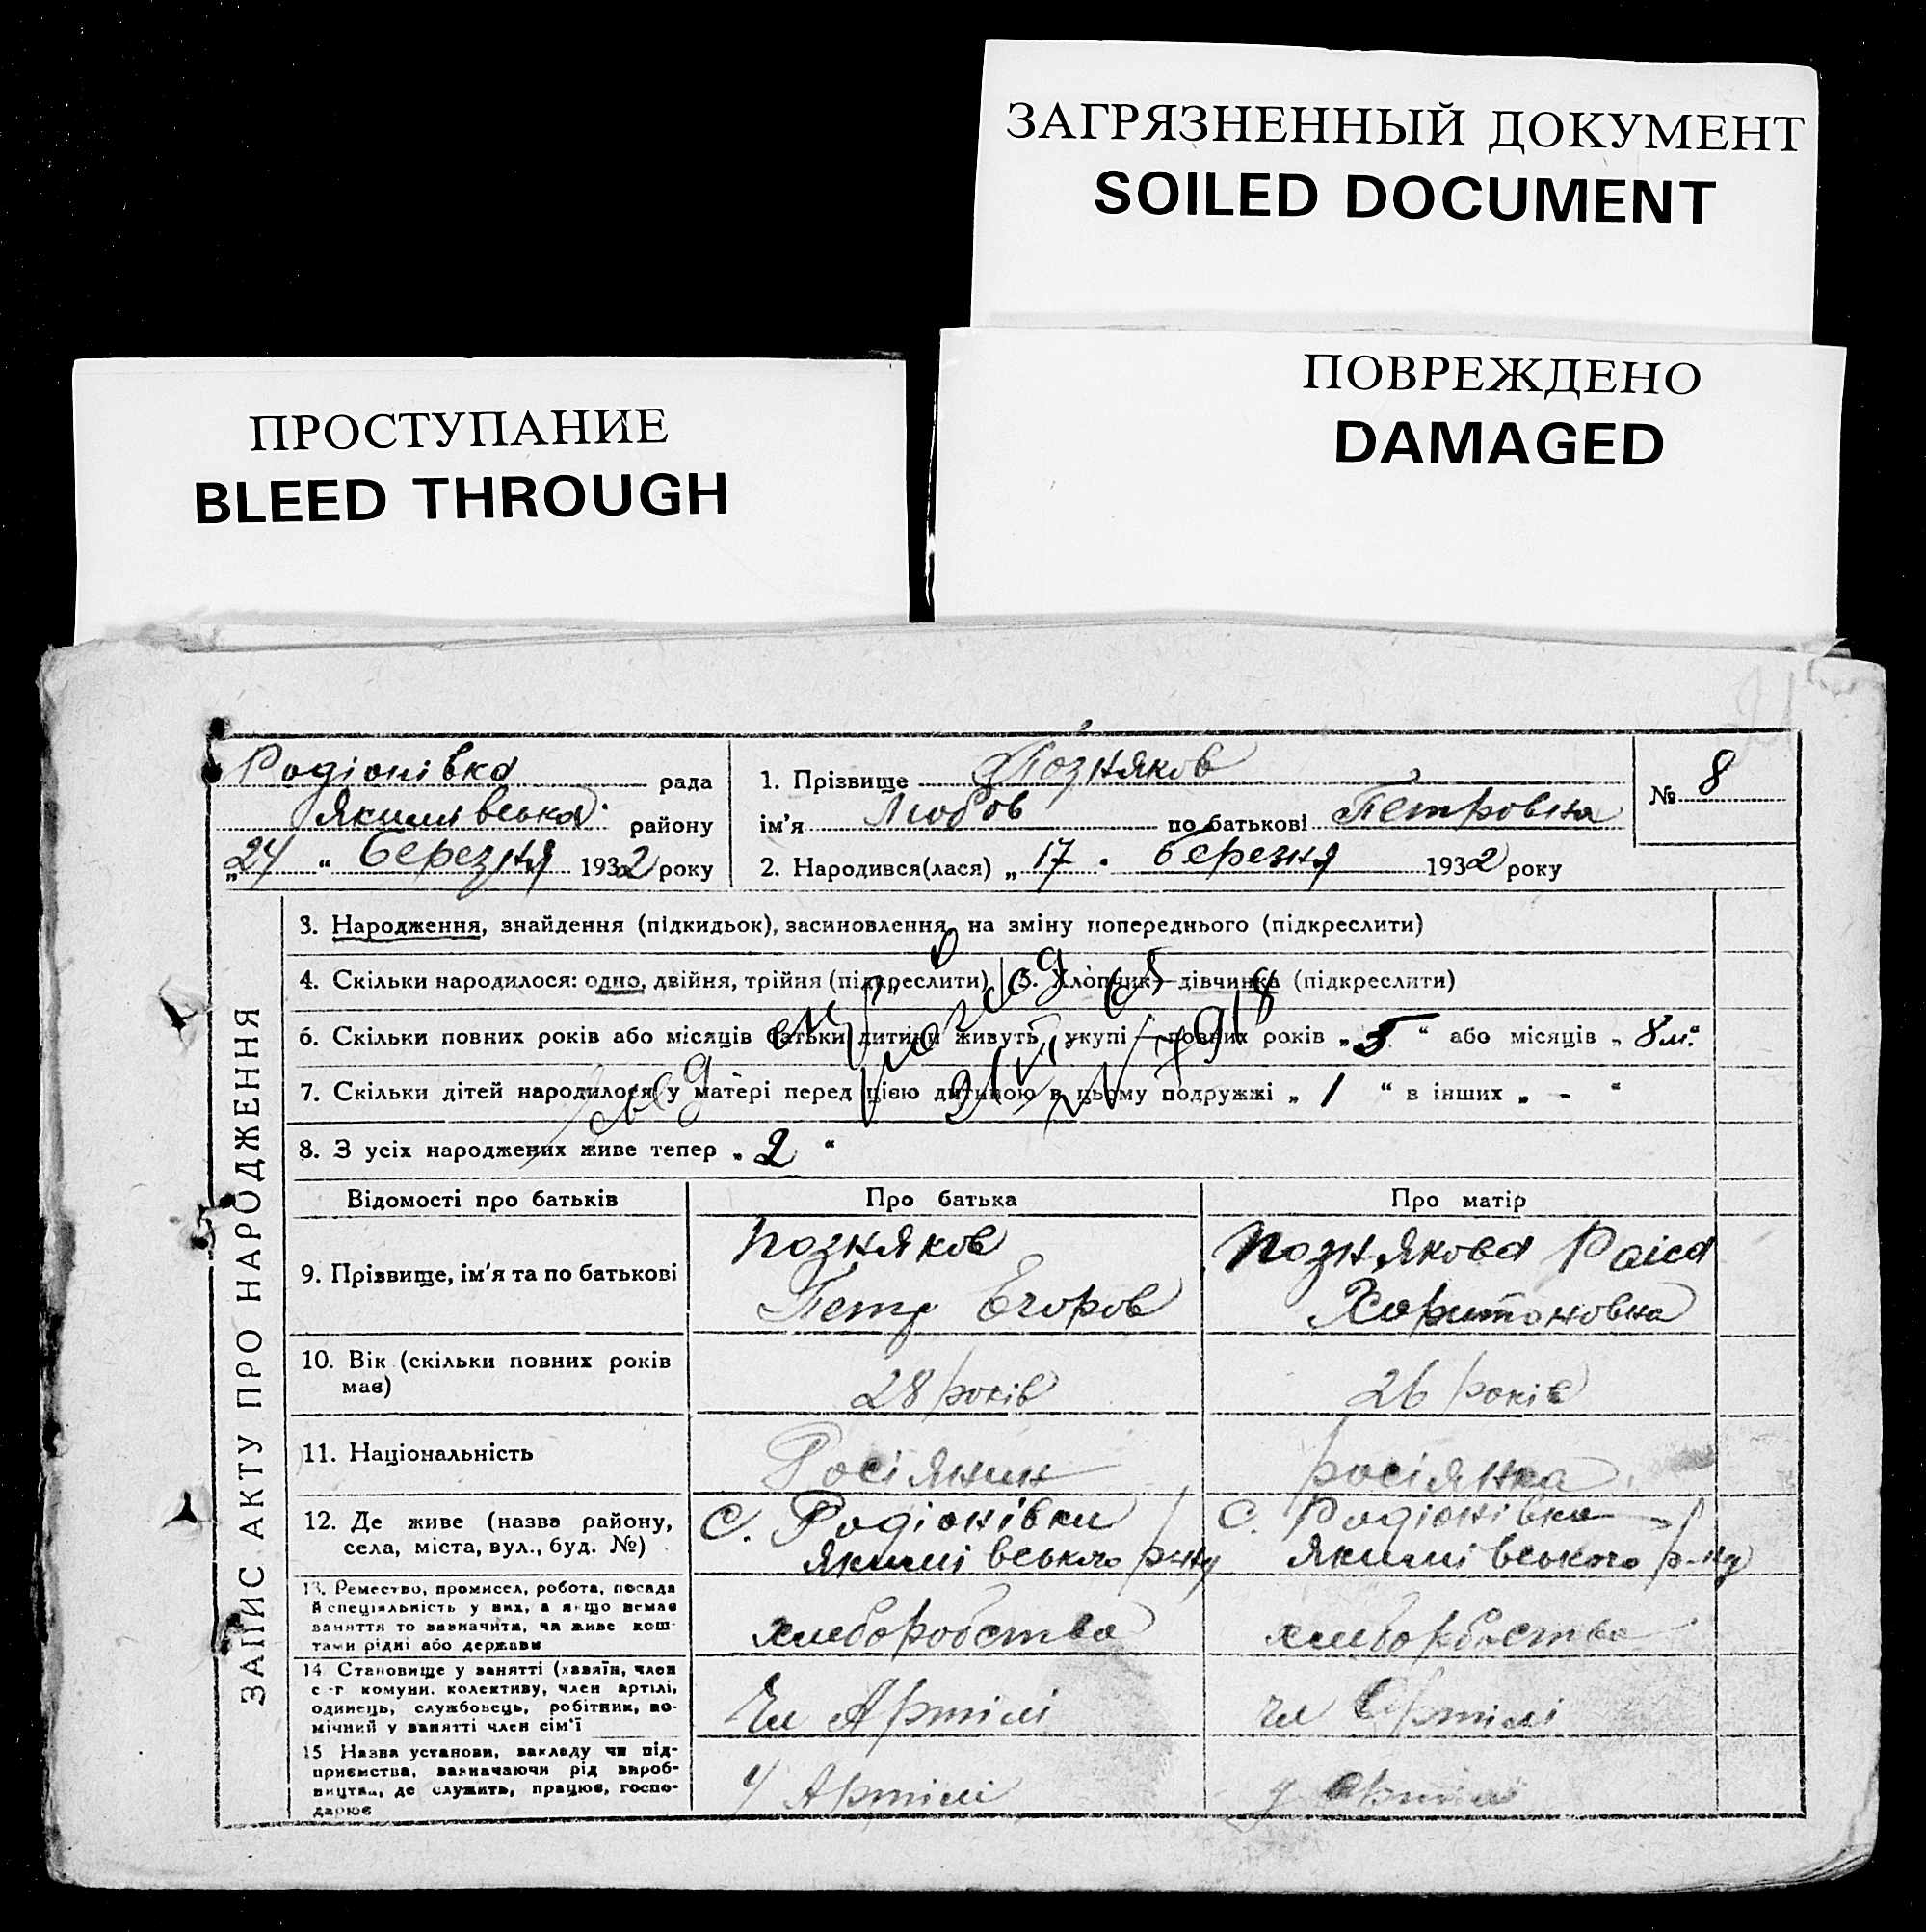 ЗАГРЯЗНЕННЫЙ ДОКУМЕНТ
SOILED DOCUMENT
ПОВРЕЖДЕНО
DAMAGED
ПРОСТУПАНИЕ
BLEED THROUGH
Родіонівка рада
Якимівська району
„24 “ березня 1932 року
1. Прізвище Позняков
ім'я Любов по батькові Петровна
2. Народився(лася) „ 17 . березня 1932 року
№ 8
ЗАПИС АКТУ ПРО НАРОДЖЕННЯ
3. Народження, знайдення (підкидьок), засиновлення, на зміну попереднього (підкреслити)
4. Скільки народилося: одно, двійня, трійня (підкреслити) 5. Хлопчик—дівчинка (підкреслити)
6. Скільки повних років або місяців батьки дитини живуть укупі — повних років „ 5 “ або місяців „ 8 м.“
7. Скільки дітей народилося у матері перед цією дитиною в цьому подружжі „ 1 “ в інших „ - “
8. З усіх народжених живе тепер „ 2 “
Відомості про батьків Про батька Про матір
9. Прізвище, ім'я та по батькові
Позняков
Петр Егоров
Познякова Раиса
Харитоновна
10. Вік (скільки повних років має)
28 років
26 років
11. Національність
Росіянин
росіянка
12. Де живе (назва району,
села, міста, вул., буд. №)
С. Родіонівки
Якимівського р-ну
С. Родіонівка
Якимівського р-ну
13. Ремество, промисел, робота, посада
й спеціяльність у них, а якщо немає
заняття то зазначити, чи живе кош-
тами рідні або держави
хлеборобство
хлеборобство
14 Становище у занятті (хазяїн, член
с-г комуни, колективу, член артілі,
одинець, службовець, робітник, по-
мічний у занятті член сім'ї
Чл Артілі
чл Артілі
15 Назва установи, закладу чи під-
приємства, зазначаючи рід вироб-
ництва, де служить, працює, госпо-
дарює
у Артілі
у Артілі